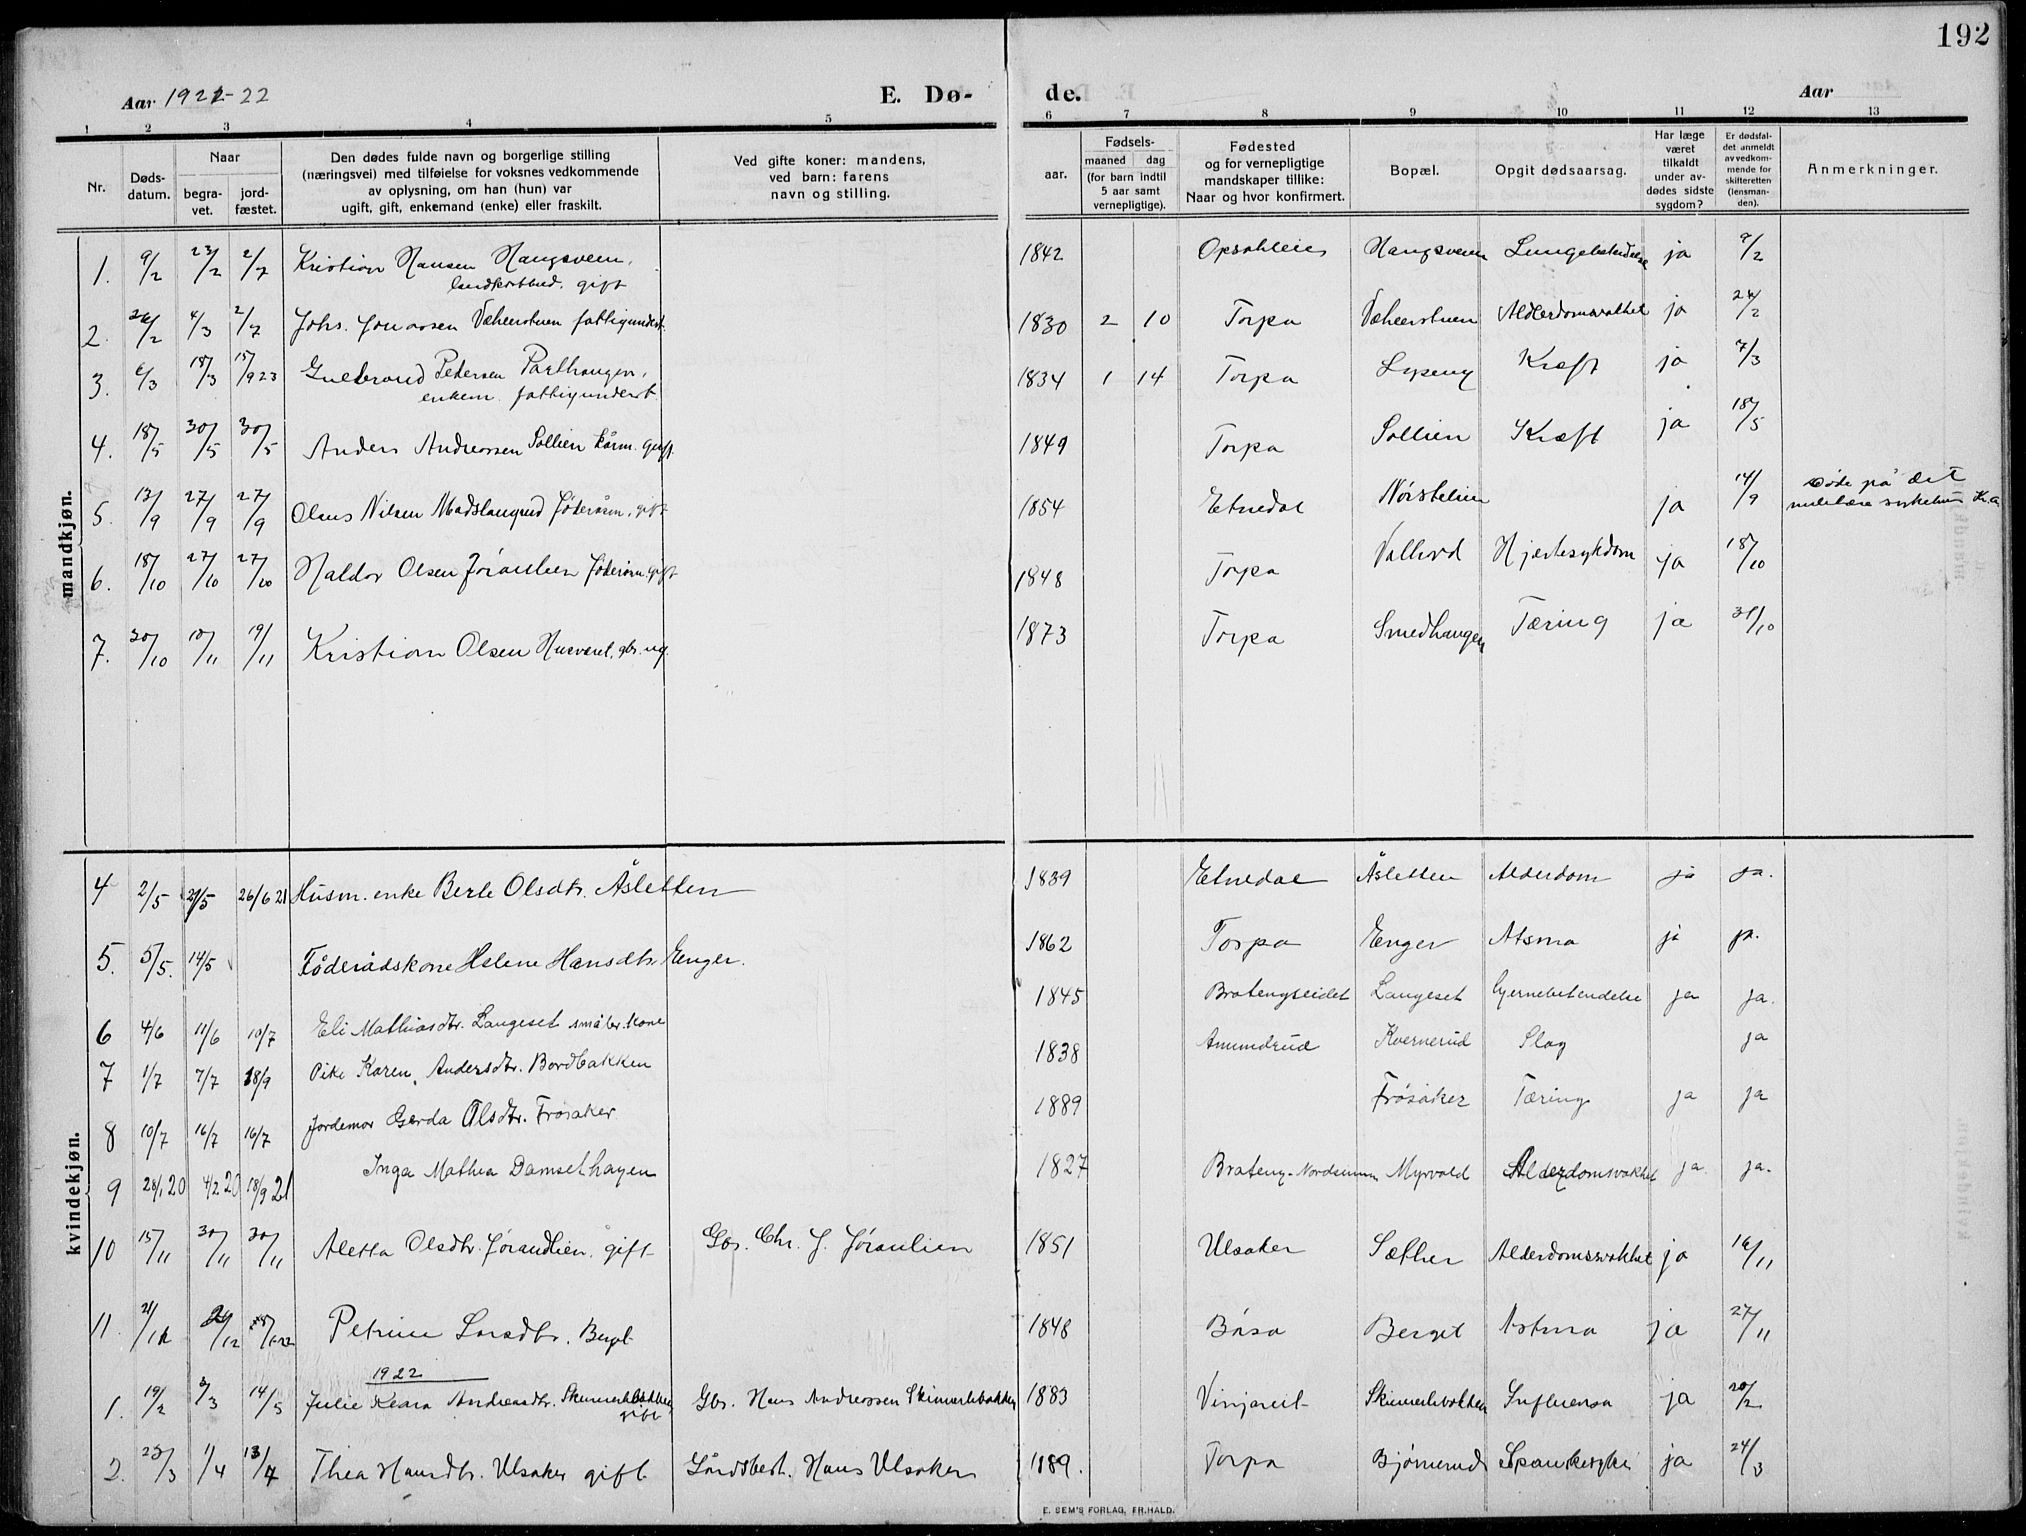 192
Aar 1921-22
E. Dø-
de.
Aar
1 2 3 4 5 6 7 8 9 10 11 12 13
Nr.
Døds-
datum.
Naar
begra-
vet.
jord-
fæstet.
Den dødes fulde navn og borgerlige stilling
(næringsvei) med tilføielse for voksnes vedkommende
av oplysning, om han (hun) var
ugift, gift, enkemand (enke) eller fraskilt.
Ved gifte koner: mandens,
ved barn: farens
navn og stilling.
aar.
Fødsels-
maaned dag
(for barn indtil
5 aar samt
vernepligtige).
Fødested
og for vernepligtige
mandskaper tillike:
Naar og hvor konfirmert.
Bopæl.
Opgit dødsaarsag.
Har læge
været
tilkaldt
under av-
dødes sidste
sygdom?
Er dødsfal-
det anmeldt
av vedkom-
mende for
skifteretten
(lensman-
den).
Anmerkninger.
mandkjøn.
1. 9/2 23/2 2/7 Kristian Hansen Haugsveen, 1842 Haugsveen ja 9/2
gift
2. 4/3 2/7 Johs. 1830 2 10 Torpa Alderdomsvakhet ja 24/2
3. 18/3 Gulbrand Pedersen 1834 1 14 Torpa Kræft ja 7/3
enkem. fattigunderst.
4. 18/5 30/5 30/5 Anders Andreassen Sollien kårm. gift. 1849 Torpa Sollien Kræft ja 18/5
5. 13/9 27/9 27/9 Olaus Nilsen Madslangrud føderåm. gift 1854 Etnedal Nørstelien ja 14/9 Døde på det
militære sykehus Kr.a
6. 18/10 27/10 27/10 Haldor Olsen Jøranlien føderåm. gift 1848 Torpa Valhovd Hjertesykdom ja 18/10
7. 30/10 10/11 19/11 Kristian Olsen 1873 Torpa Smedhaugen Tæring ja 31/10
kvindekjøn.
4 2/5 21/5 26/6 21 Husm. enke Berte Olsdtr. Åsletten 1839 Etnedal Åsletten Alderdom ja ja.
5. 5/5. 14/5 Føderådskone Helene Hansdtr. Enger. 1862 Torpa Enger Atsma ja ja.
6 4/6 11/6 10/7 Eli Mathiasdtr. Langeset småbr. kone 1845 Bratengseidet Langeset hjernebetendelse ja ja.
7 1/7 7/7 18/9 Pike Karen Andersdtr. Bordbakken 1838 Amundrud Kvernerud Slag ja
8 10/7 16/7 16/7 Jordemor Gerda Olsdtr. Frøsaker 1889 Frøsaker Tæring ja ja
9 28/1 20 4/2 20 18/9 21 Inga Mathea Damsethagen 1827 Brateng-Nordsinnen Myrvold Alderdomsvakhet ja. ja.
10 15/11 30/11 30/11 Aletta Olsdtr. Jørandlien, gift Chr. J. Jøranlien 1851 Ulsaker Sæther Alderdomssvakhet ja 16/11
11. Petrine Larsdtr. Berget 1848 Berget Astma ja 27/11
1922
1. 19/2 3/3 14/5 Julie Klara Andreasdtr. gift Gbr. Hans Andreassen 1883 Influensa ja 20/2
2. 23/3 1/4 13/4 Thea Hansdtr. Ulsaker gift Gårdsbest. Hans Ulsaker 1889. Torpa Bjørnerud Spanskesyke ja 24/3
E. SEM'S FORLAG, FR.HALD.